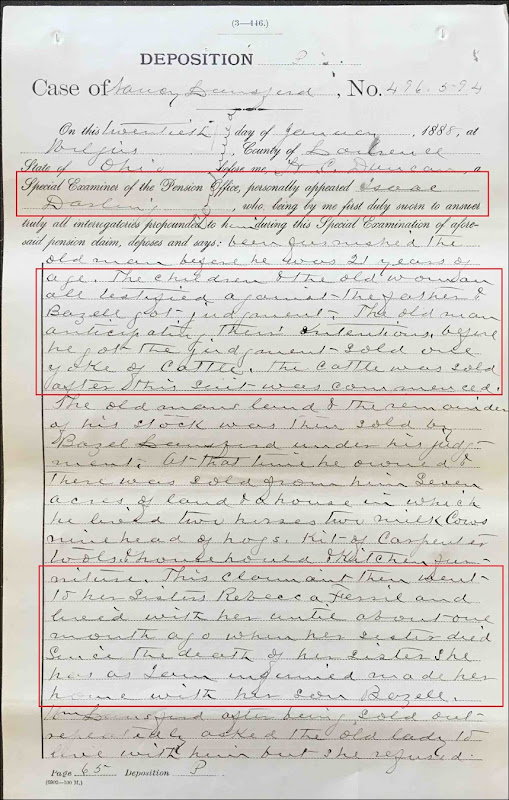 (3—446.)
DEPOSITION P
Case of Nancy Lunsford, No. 496.594
On this twentieth day of January, 1888, at
Wilgus County of Lawrence
State of Ohio before me, Duncan, a
Special Examiner of the Pension Office, personally appeared Isaac
Darling who, being by me first duly sworn to answer
truly all interrogatories propounded to him during this Special Examination of afore-
said pension claim, deposes and says: been furnished the
old man before he was 21 years of
age. The children & the old woman
all testified against the father &
Bazell got judgment. The old man
anticipating their intentions, before
he got the judgment sold one
yoke of Cattle. The cattle was sold
after this suit was commenced.
The old mans land & the remainder
of his stock was then sold by
Bazel Lunsford under his judg-
ment. At that time he owned &
there was sold from him seven
acres of land & a house in which
he lived two horses two milk Cows
nine head of hogs. Kit of Carpenter
tools & household & Kitchen fur-
niture. This claimant then went
to her sisters Rebecca and
lived with her until about one
month ago when her sister died
Since the death of her sister she
has as I am informed made her
home with her son Bazell.
Wm Lunsford after being sold out
repeatedly asked the old lady to
live with him but she refused.
Page 65 Deposition P